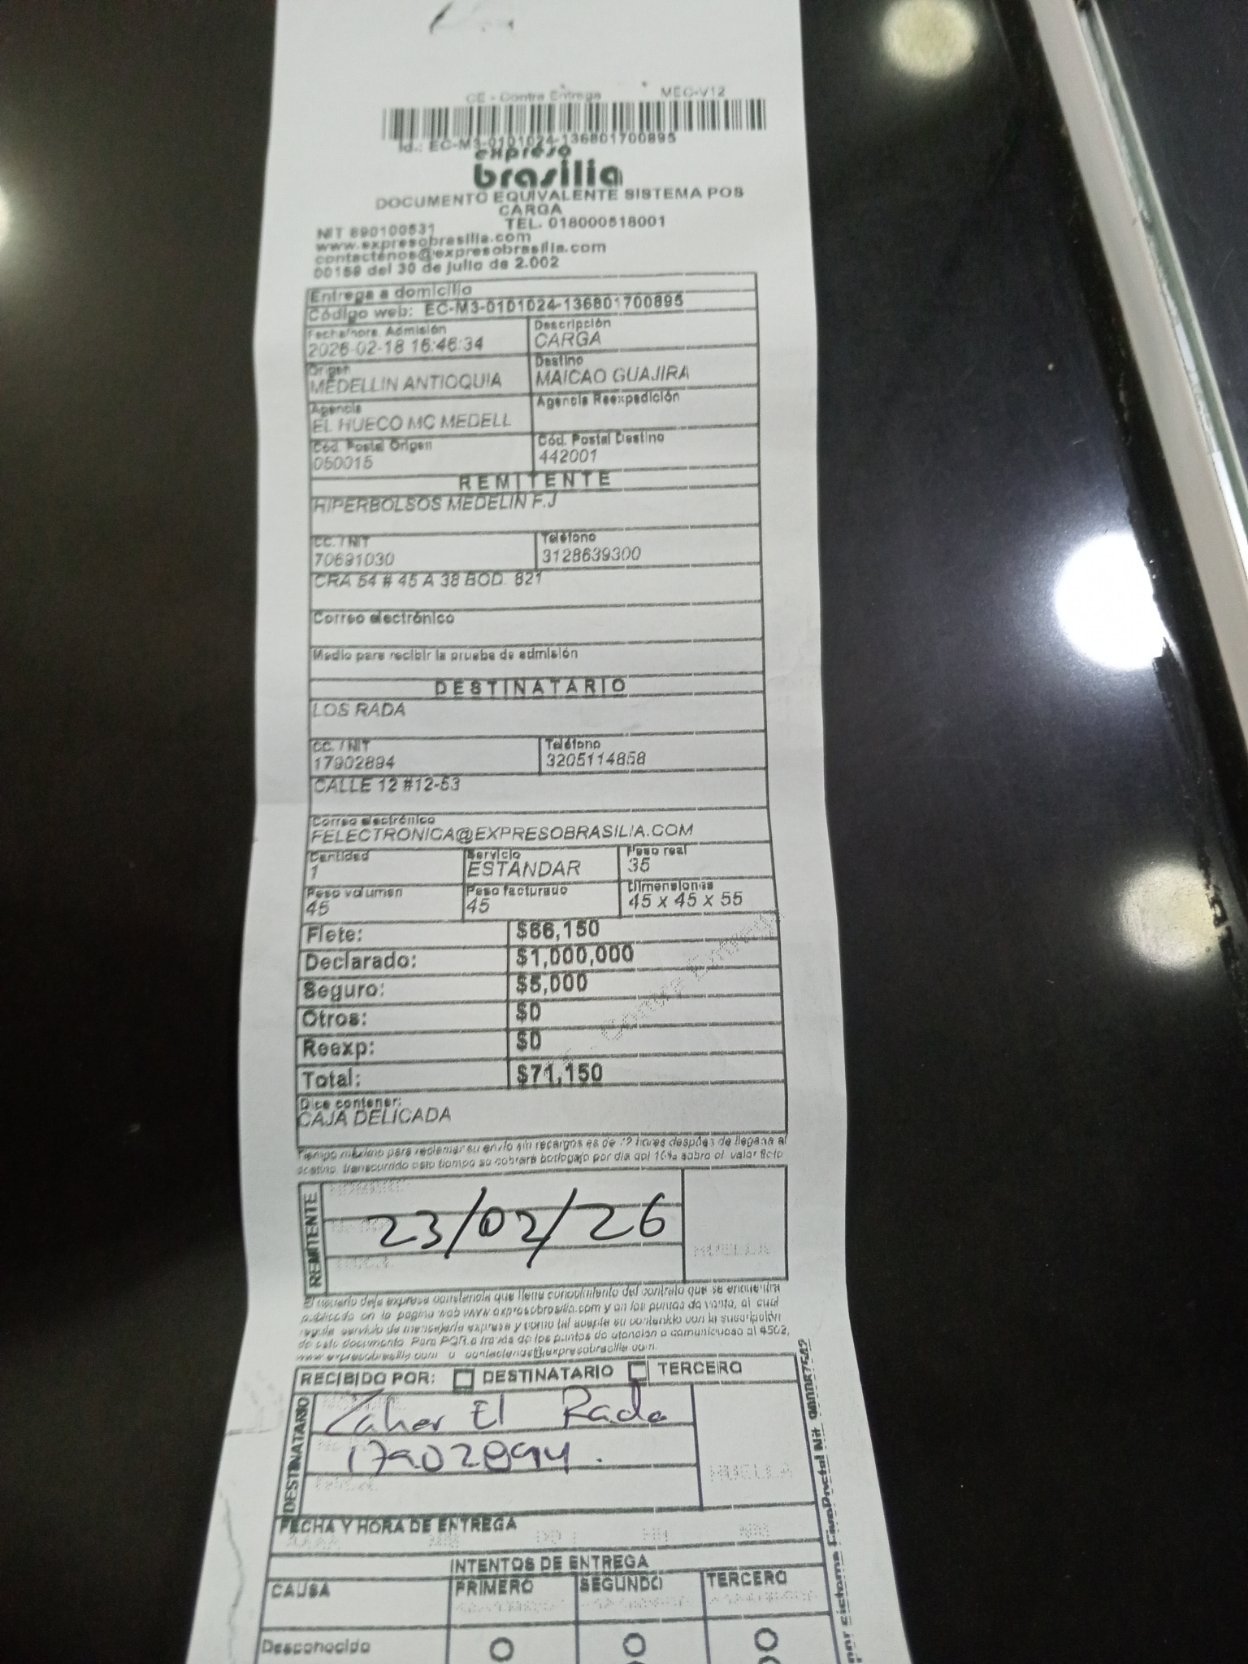 CE - Contra Entrega MEC-V12
Id.: EC-M3-0101024-136801700895
expreso
brasilia
DOCUMENTO EQUIVALENTE SISTEMA POS
CARGA
NIT 890100531 TEL. 018000518001
www.expresobrasilia.com
contactenos@expresobrasilia.com
00159 del 30 de julio de 2.002
Entrega a domicilio
Código web: EC-M3-0101024-136801700895
Fecha/hora. Admisión Descripción
2026-02-18 16:46:34 CARGA
Origen Destino
MEDELLIN ANTIOQUIA MAICAO GUAJIRA
Agencia Agencia Reexpedición
EL HUECO MC MEDELL
Cód. Postal Origen Cód. Postal Destino
050015 442001
REMITENTE
HIPERBOLSOS MEDELIN F.J
CC. / NIT Teléfono
70691030 3128639300
CRA 54 # 45 A 38 BOD. 821
Correo electrónico
Medio para recibir la prueba de admisión
DESTINATARIO
LOS RADA
CC. / NIT Teléfono
17902894 3205114858
CALLE 12 #12-53
Correo electrónico
FELECTRONICA@EXPRESOBRASILIA.COM
Cantidad Servicio Peso real
1 ESTANDAR 35
Peso volumen Peso facturado Dimensiones
45 45 45 x 45 x 55
Flete: $66,150
Declarado: $1,000,000
Seguro: $5,000
Otros: $0
Reexp: $0
Total: $71,150
Contra Entrega
Dice contener:
CAJA DELICADA
Tiempo máximo para reclamar su envío sin recargos es de 72 horas después de llegana al
destino, transcurrido este tiempo se cobrara bodegaje por día del 10% sobre el valor flete
REMITENTE
23/02/26
HUELLA
El usuario deja expresa constancia que tiene conocimiento del contrato que se encuentra
publicado en la pagina web www.expresobrasilia.com y en los puntos de venta, el cual
regula servicio de mensajería expresa y como tal acepta su contenido con la suscripción
de este documento. Para PQR a través de los puntos de atención o comunicuese al 4502,
www.expresobrasilia.com o contactenos@expresobrasilia.com.
RECIBIDO POR: DESTINATARIO TERCERO
DESTINATARIO
Zaher El Rada
17902894.
HUELLA
FECHA Y HORA DE ENTREGA
INTENTOS DE ENTREGA
CAUSA PRIMERO SEGUNDO TERCERO
Desconocido